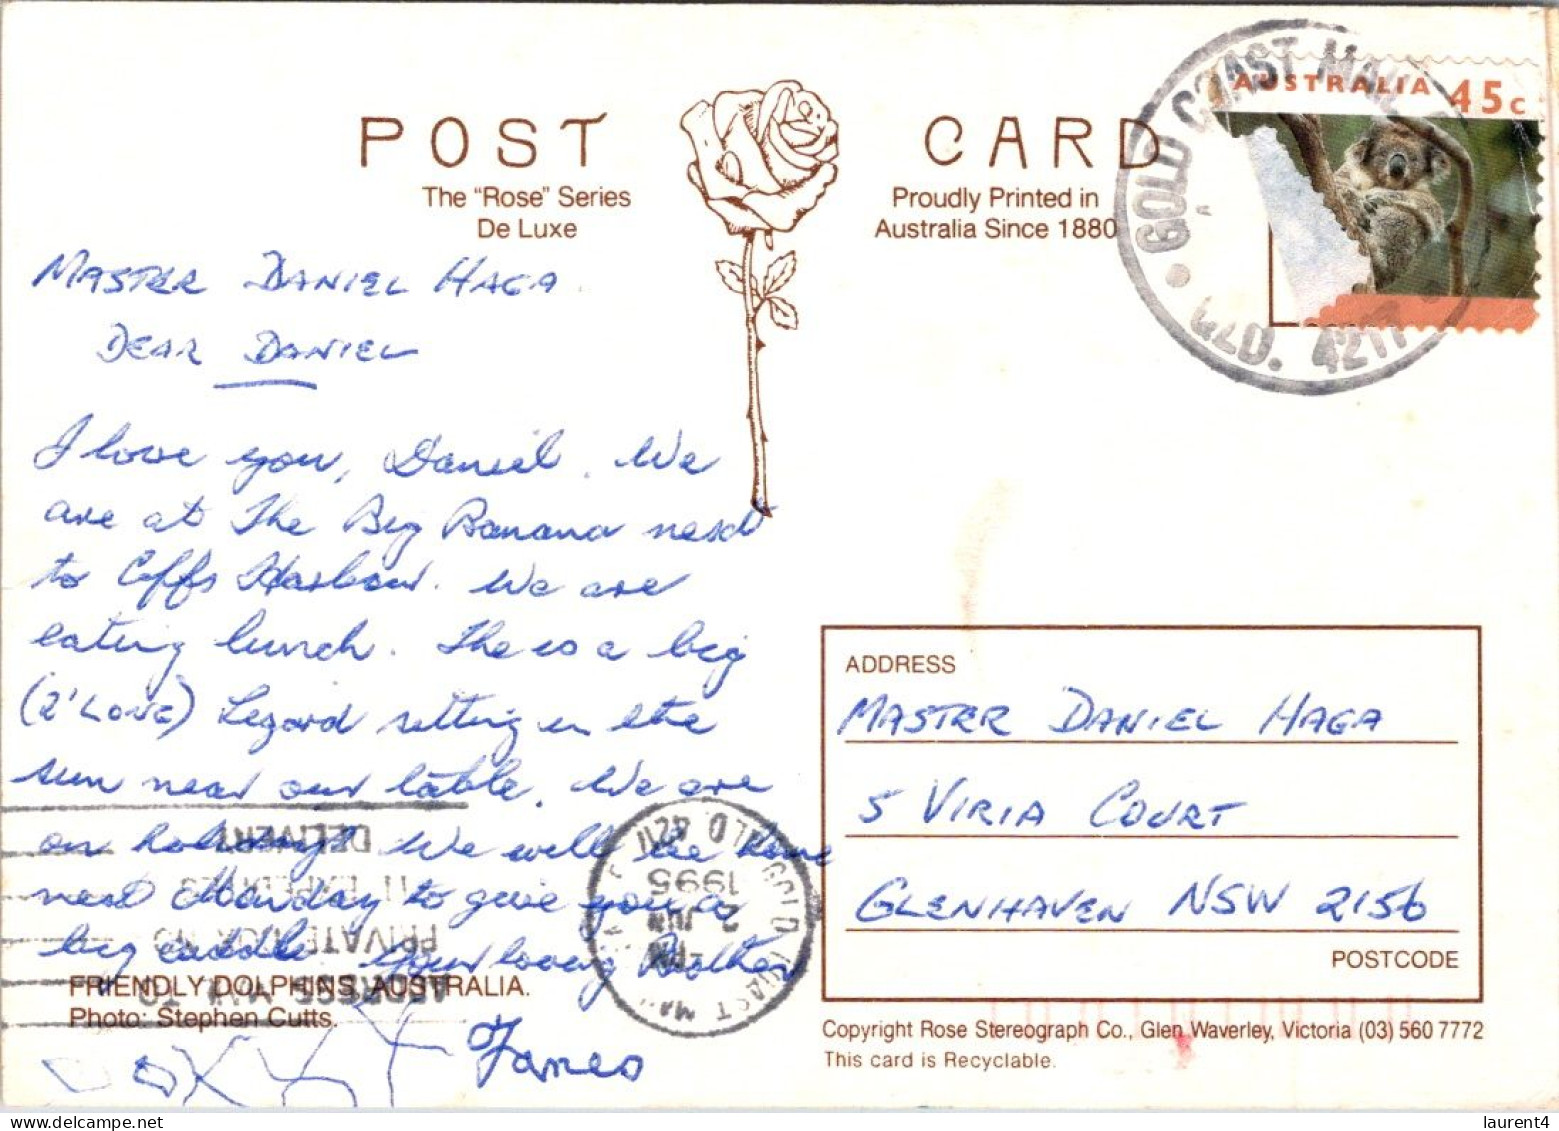 POST CARD
The "Rose" Series
De Luxe
Proudly Printed in
Australia Since 1880
AUSTRALIA 45c
GOLD COAST MAIL
QLD. 4217
MASTER DANIEL HAGA
DEAR DANIEL
I love you, Daniel. We
are at The Big Banana next
to Coffs Harbour. We are
eating lunch. The is a big
(2' LONG) Lezard sitting in the
sun near our table. We are
on holidays. We will be home
next Monday to give you a
big cuddle Your loving Brother
James
FRIENDLY DOLPHINS, AUSTRALIA.
Photo: Stephen Cutts.
ADDRESS
PRIVATE
IT EXPEDITES
DELIVERY
GOLD COAST MAIL
PM
2 JUN
1995
QLD 4217
ADDRESS
MASTER DANIEL HAGA
5 VIRIA COURT
GLENHAVEN NSW 2156
POSTCODE
Copyright Rose Stereograph Co., Glen Waverley, Victoria (03) 560 7772
This card is Recyclable.
laurent4